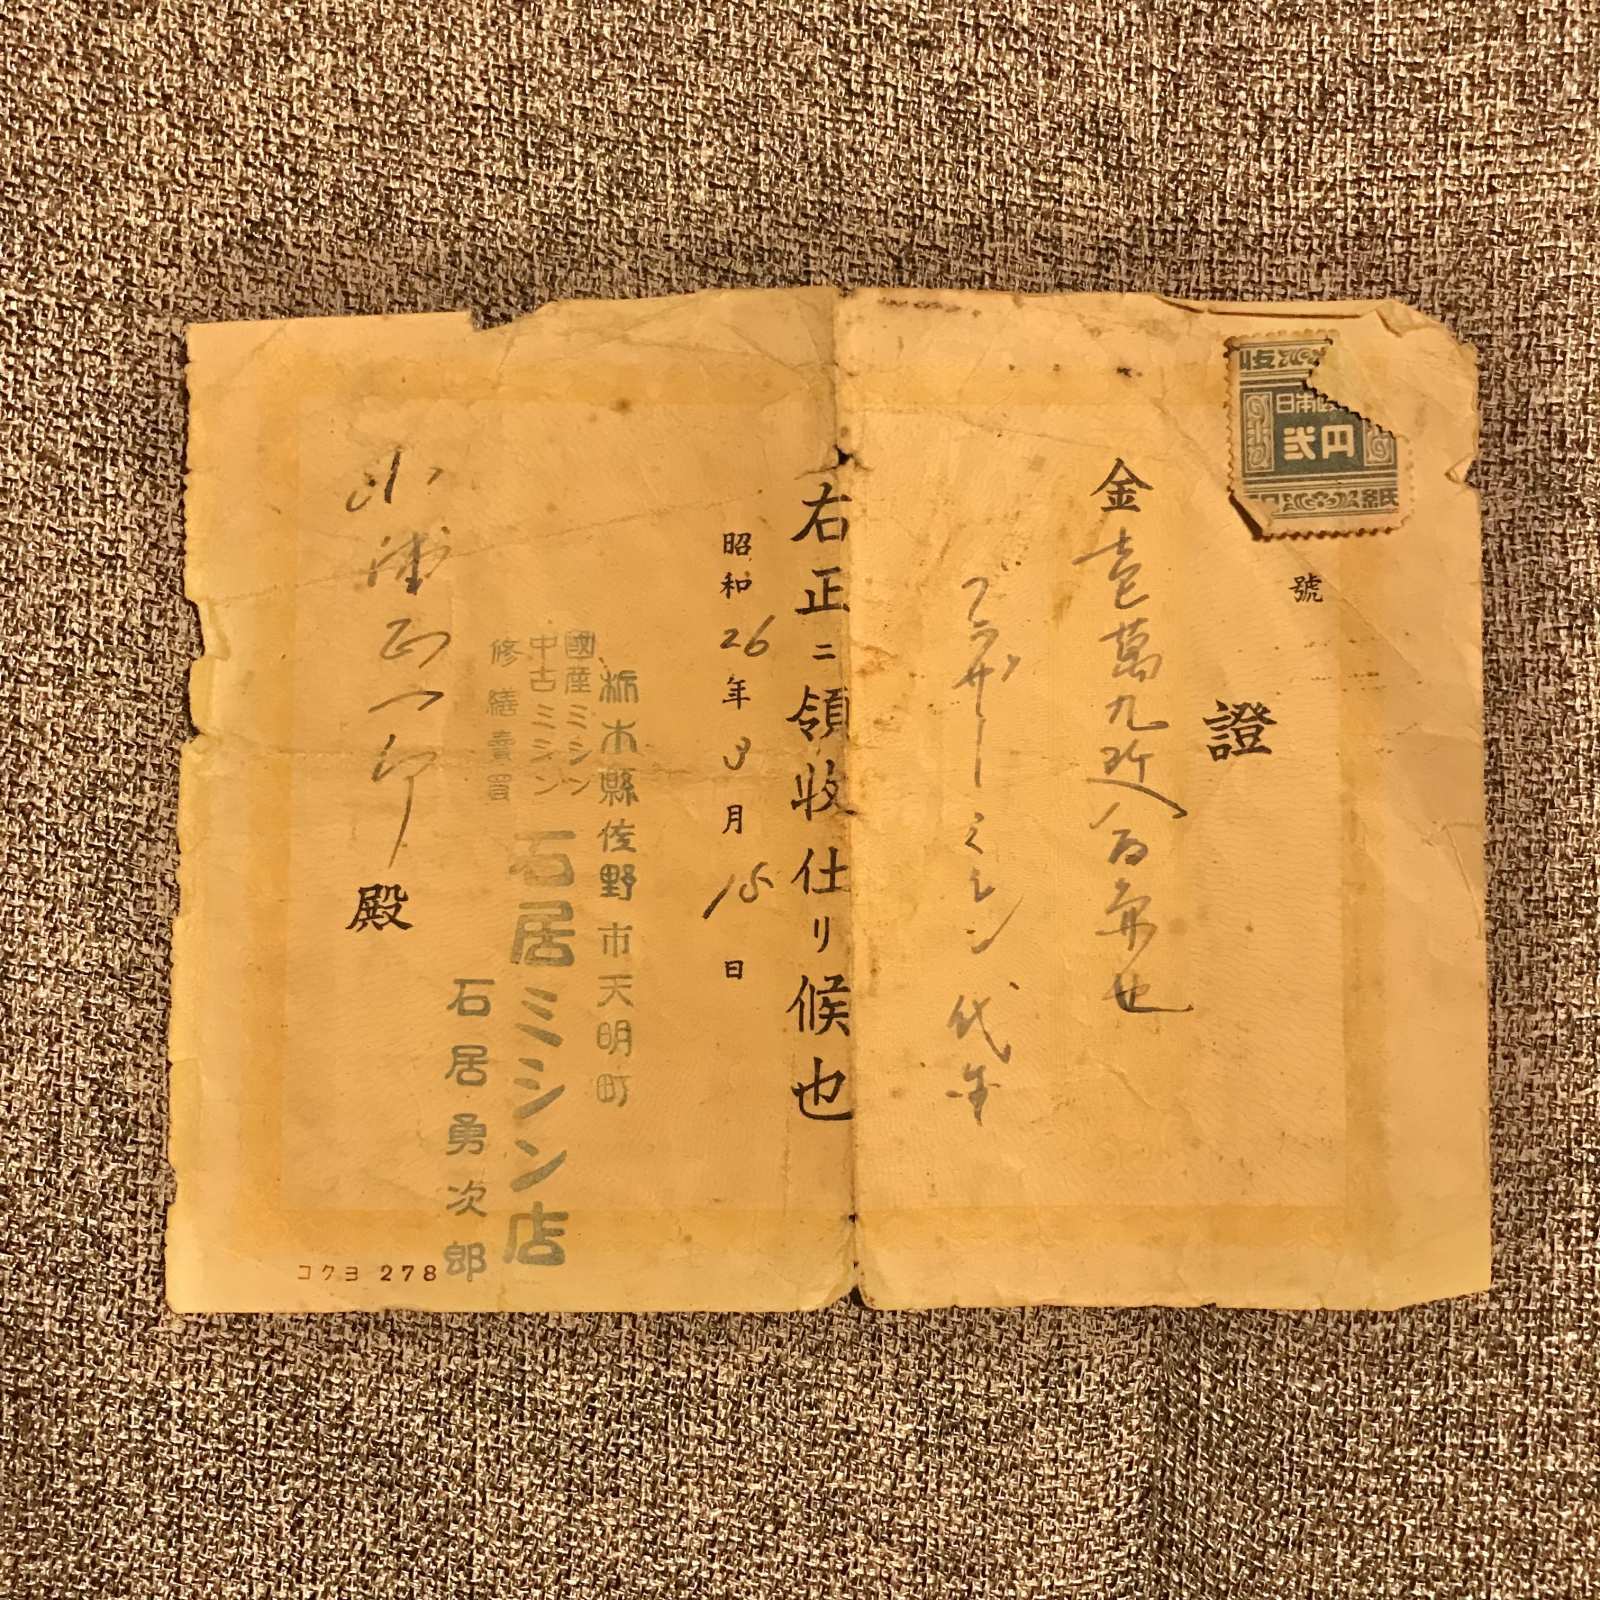 日本政
弐円
紙
號
證
金壱萬九阡八百円也
ブラザーミシン代金
右正ニ領收仕リ候也
昭和26年3月15日
栃木縣佐野市天明町
國産ミシン
中古ミシン
修繕賣買
石居ミシン店
石居勇次郎
殿
コクヨ 278